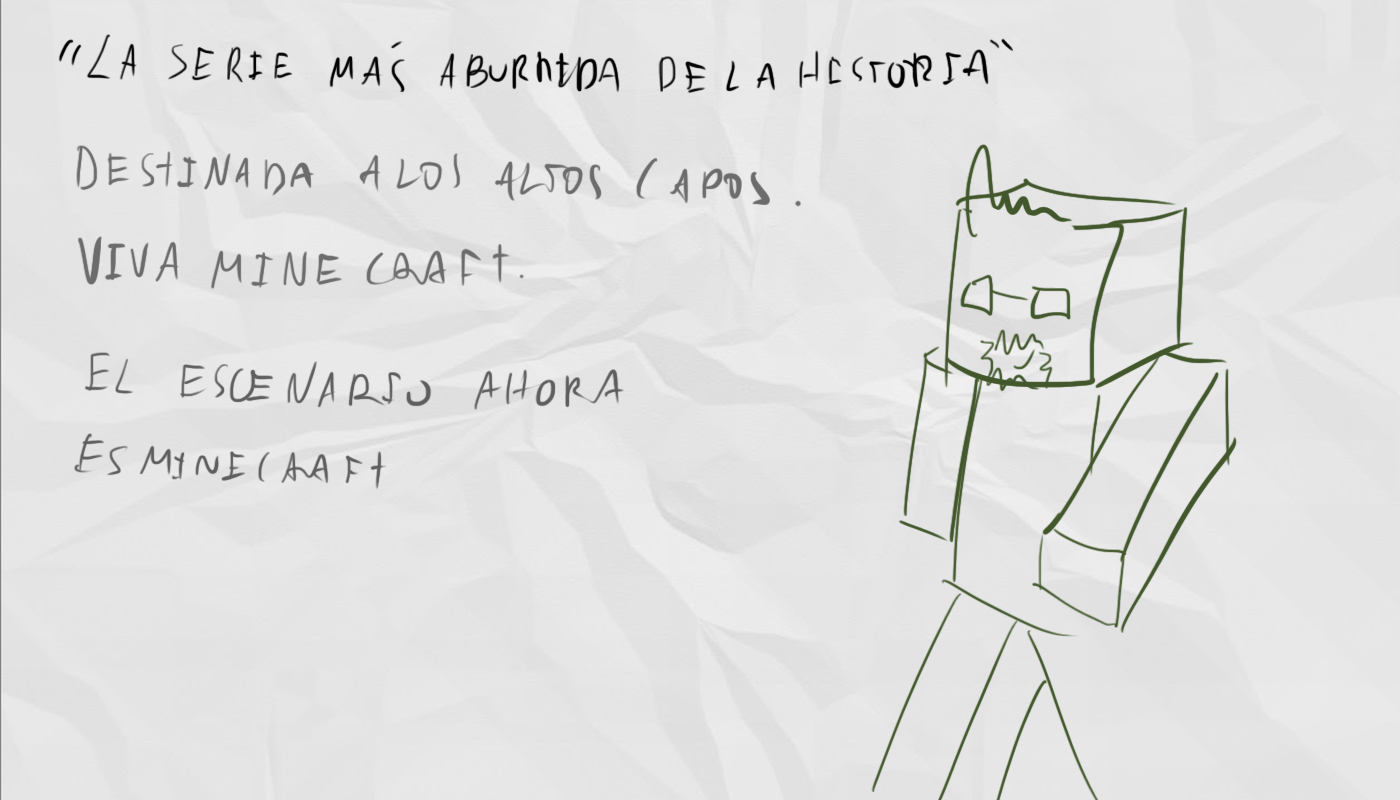 "LA SERIE MÁS ABURRIDA DE LA HISTORIA"
DESTINADA A LOS ALTOS CAPOS.
VIVA MINECRAFT.
EL ESCENARIO AHORA
ES MINECRAFT